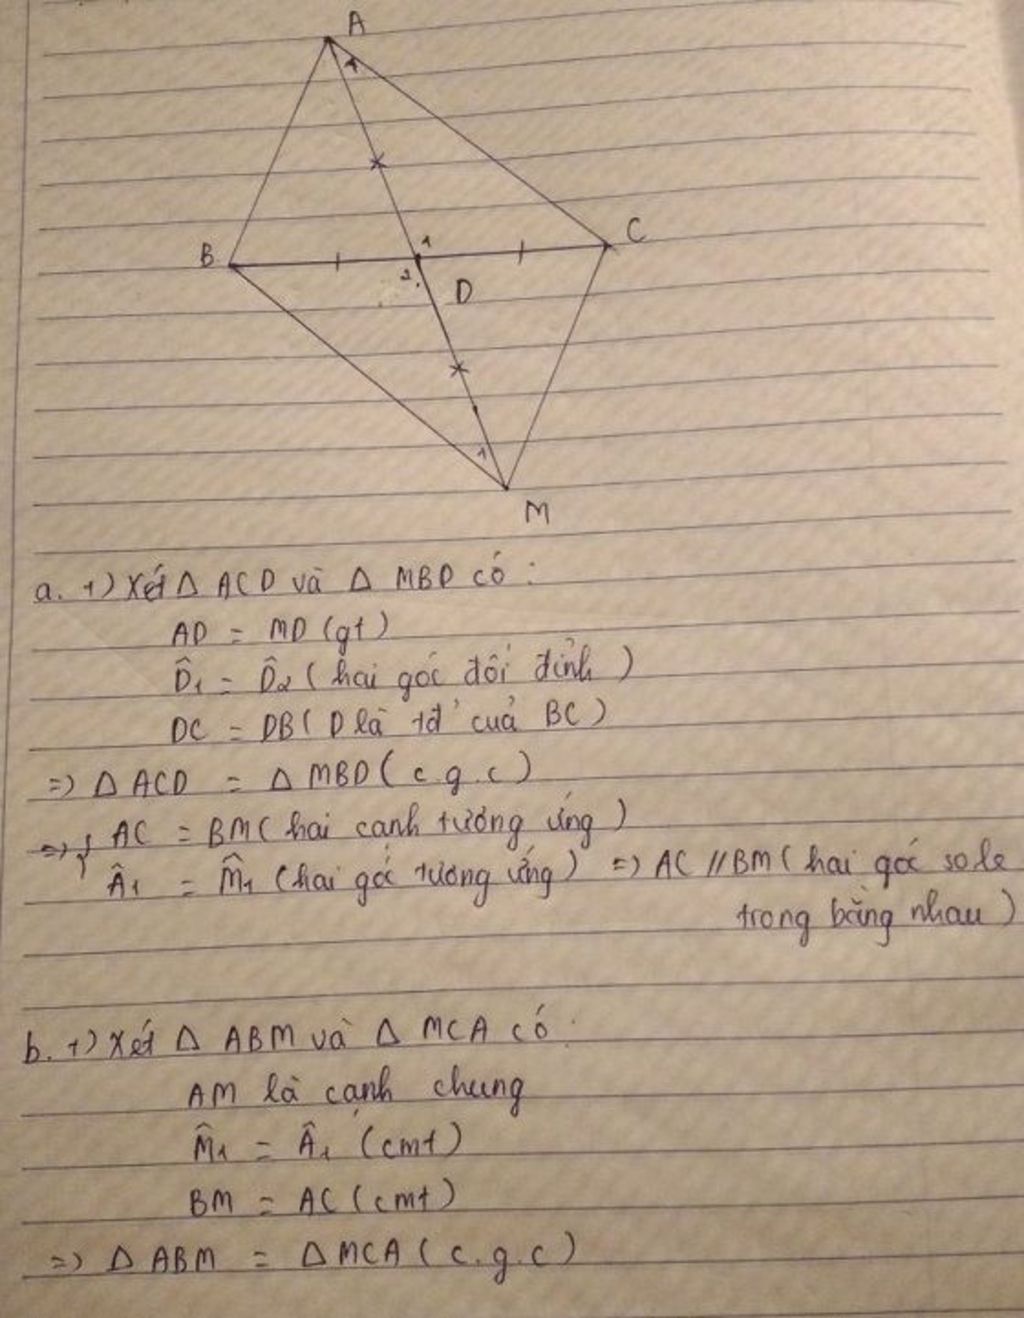 A
1
B
1
C
2
D
1
M
a. +) Xét Δ ACD và Δ MBD có :
AD = MD (gt)
D̂1 = D̂2 ( hai góc đối đỉnh )
DC = DB ( D là tđ' của BC )
=> Δ ACD = Δ MBD ( c.g.c )
=> { AC = BM ( hai cạnh tương ứng )
Â1 = M̂1 ( hai góc tương ứng ) => AC // BM ( hai góc so le
trong bằng nhau )
b. +) Xét Δ ABM và Δ MCA có :
AM là cạnh chung
M̂1 = Â1 (cmt)
BM = AC (cmt)
=> Δ ABM = Δ MCA ( c.g.c )